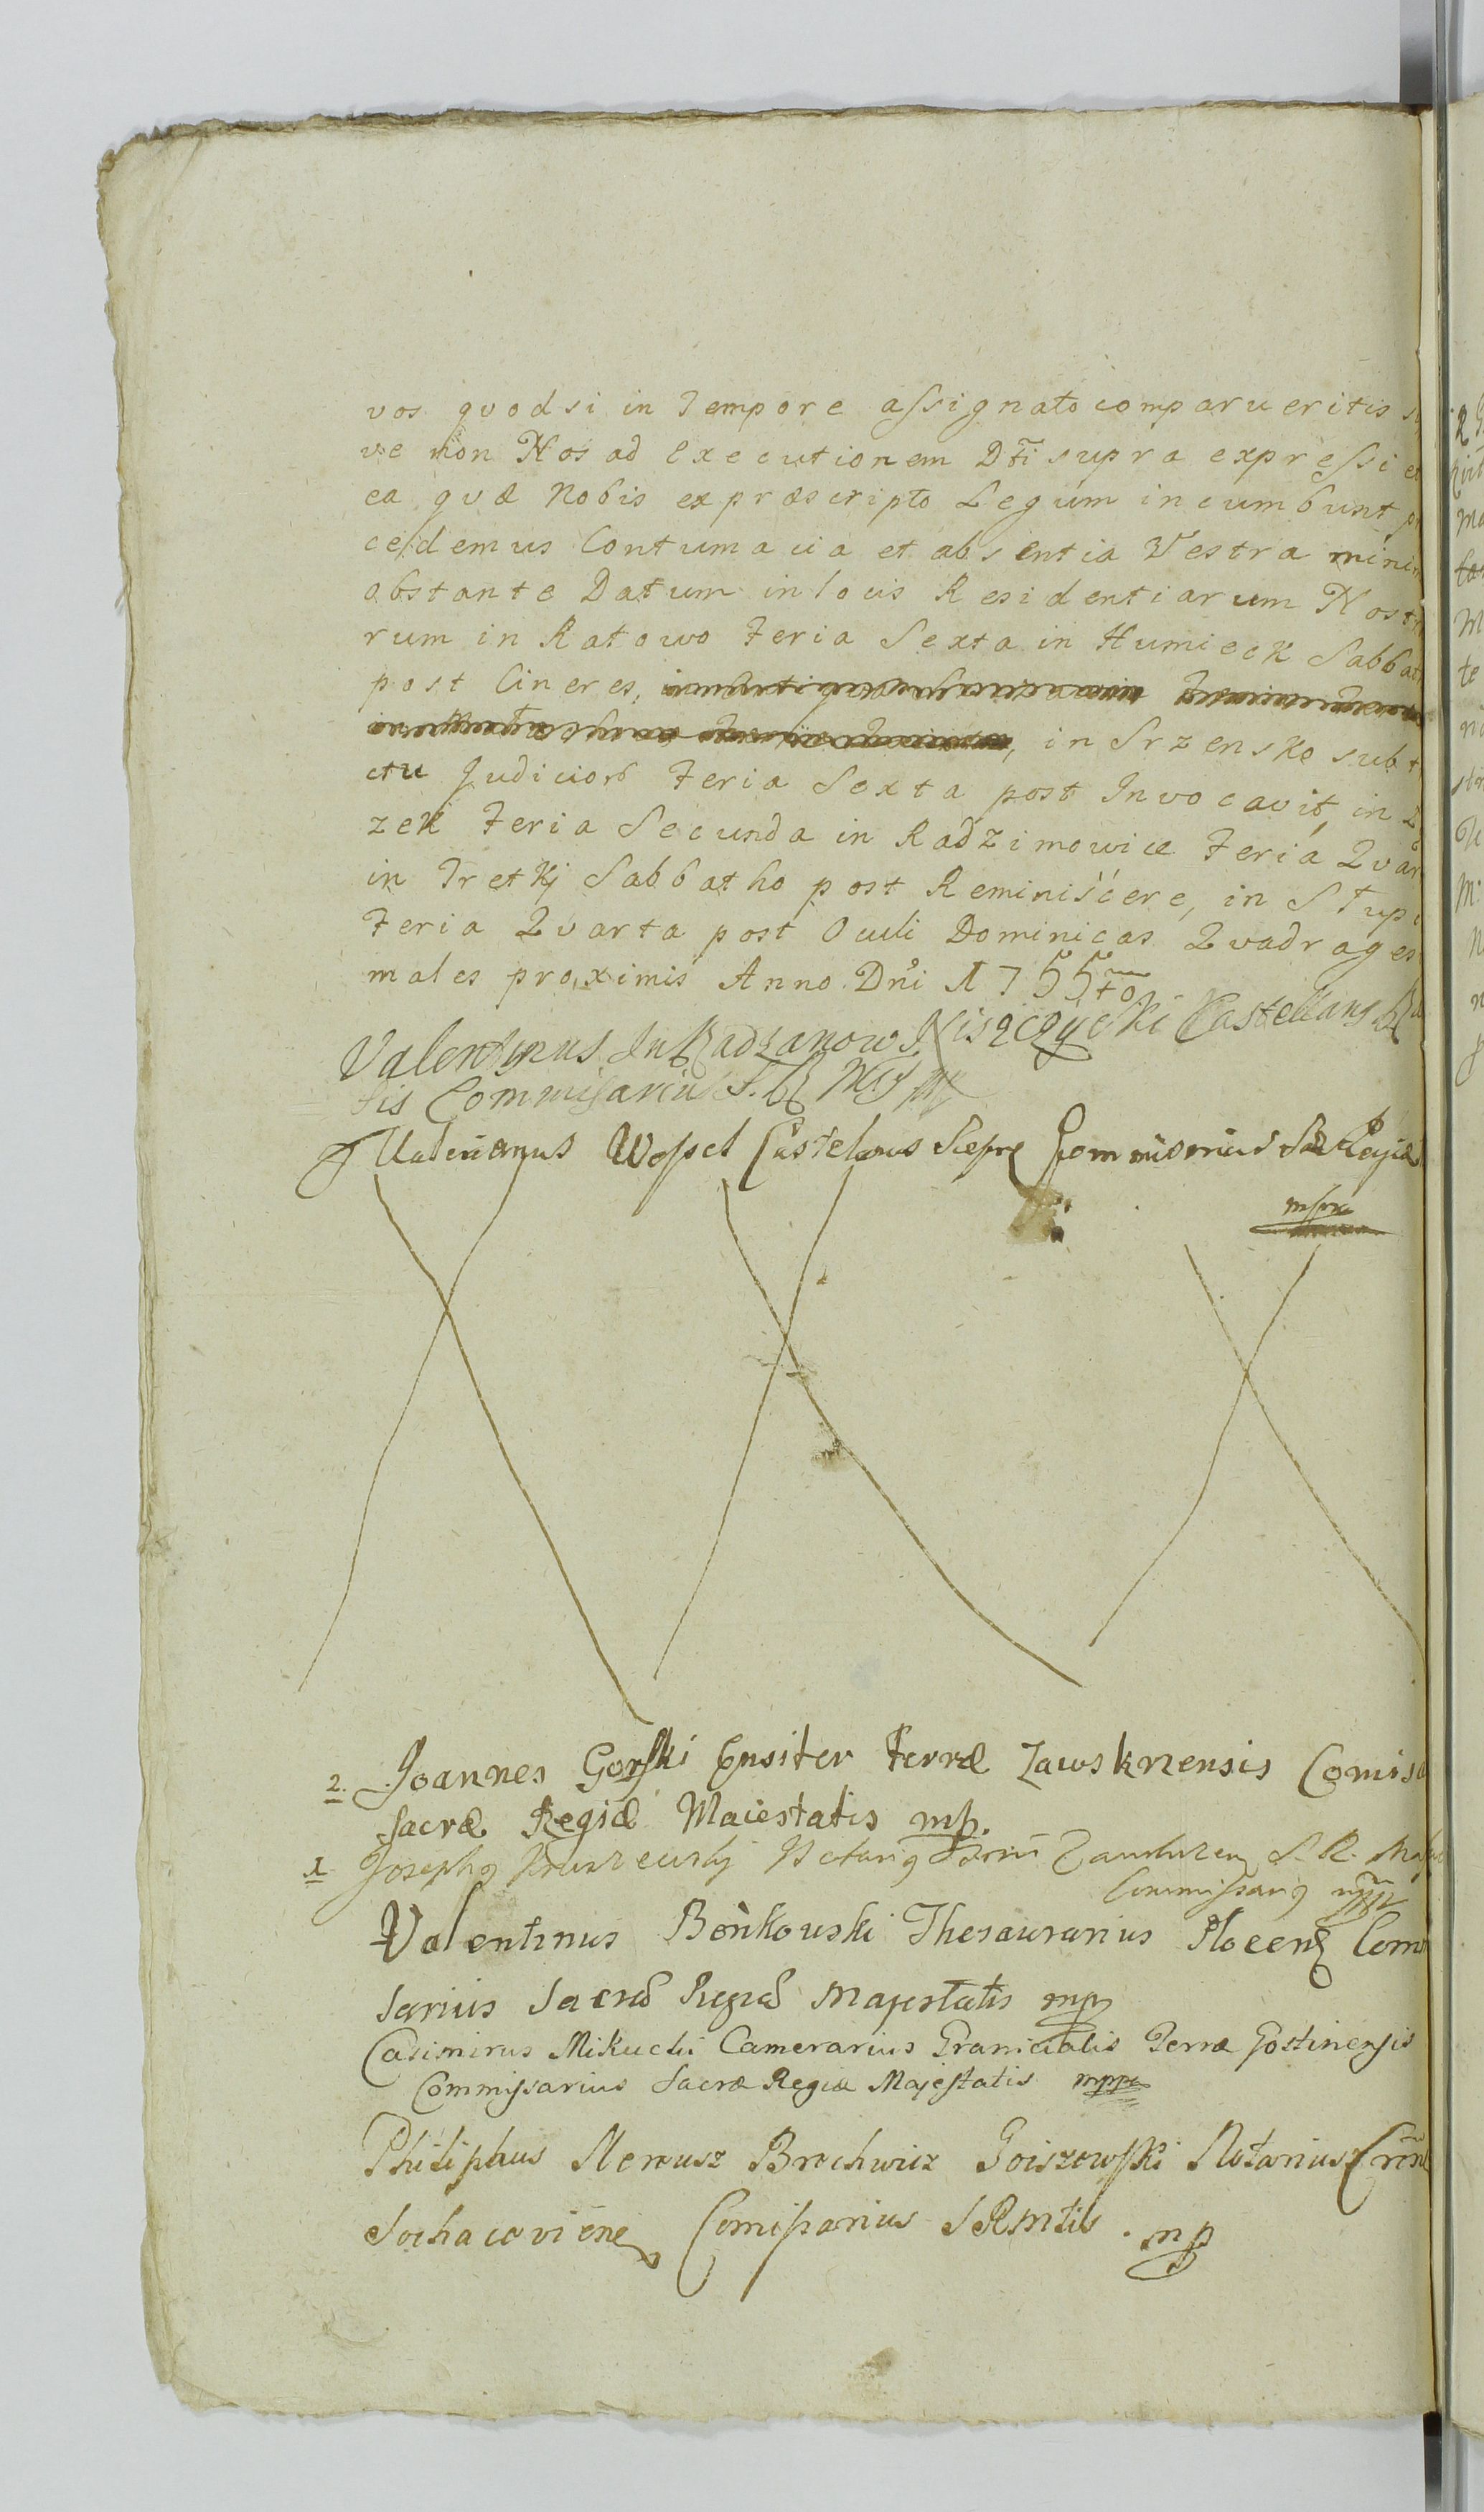 vos quodsi in Tempore assignato comparueritis
ve non Nos ad Executionem Dti supra expressi
ea quæ Nobis ex præscripto Legum incumbunt
cedemus Contumacia et absentia Vestra mini
obstante Datum in locis Residentiarum Nost
rum in Ratowo Feria Sexta in Humieck Sabbat
post Cineres,
, in Srzensko sub
ctu Judicior Feria Sexta post Invocavit, in
zek Feria Secunda in Radzimowice Feria Qvar
in Tretkj Sabbatho post Reminiscere, in Stup
Feria Qvarta post Oculi Dominicas Qvadrages
males proximis Anno Dni 1755to
Valentinus In Radzanow Niszczycki Castellanus
tis Commissarius S. R. M.
Valerianus Wessel Castelanus Commissarius Regiæ
mpria
2. Joannes Gorski Ensifer Terræ Zawskrzensis Comissa
Sacræ Regiæ Maiestatis mp.
1. Josephus Notarius S. R.
Commissarius mpp
Valentinus Bońkowski Thesaurarius Plocens Com
sarius Sacræ Regiæ Majestatis mp
Casimirus Mikucki Camerarius Granicialis Terræ Gostinensis
Commissarius Sacræ Regiæ Majestatis mppa
Philiphus Nereusz Brochwicz Goiszewski Notarius
Sochacoviens Comissarius SRMtis. mp